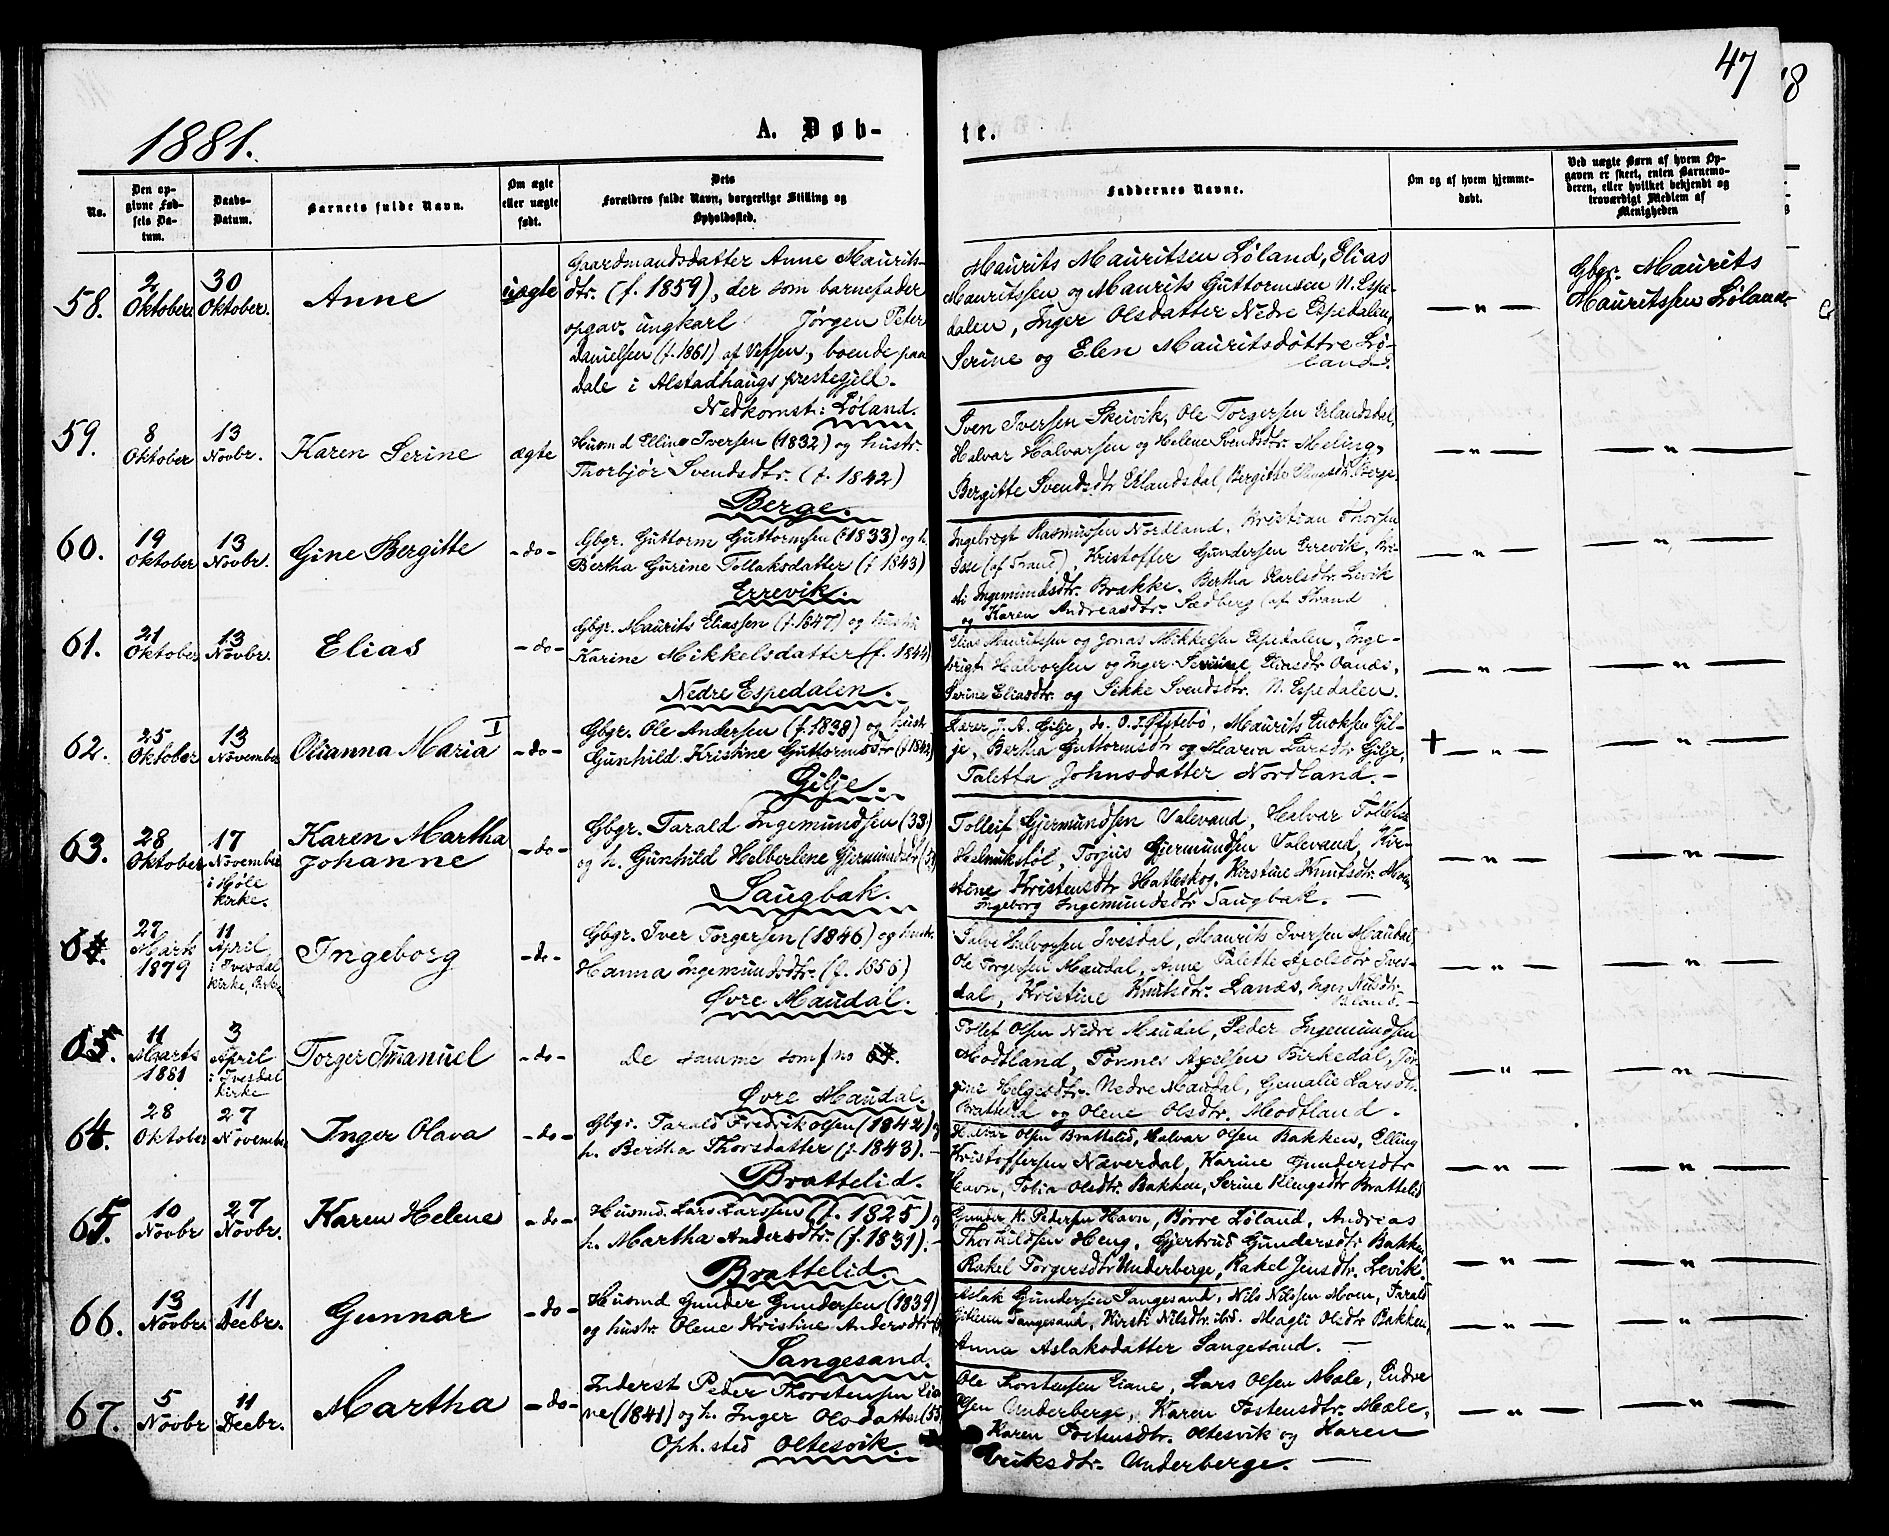 47
18
1881.
A. Døb-
te.
No.
Den op-
givne Fød-
sels Da-
tum.
Daabs-
Datum.
Barnets fulde Navn.
Om ægte
eller uægte
født.
Dets
Forældres fulde Navn, borgerlige Stilling og
Opholdssted.
Faddernes Navne.
Om og af hvem hjemme-
døbt.
Ved uægte Børn af hvem Op-
gaven er skeet, enten Barnemo-
deren, eller hvilket bekjendt og
troværdigt Medlem af
Menigheden
58.
2
Oktober
30
Oktober.
Anne
uægte
Gaardmandsdatter Anne Maurits-
dtr. (f. 1859), der som barnefader
opgav. ungkarl Jörgen Peter
Danielsen (f. 1861) af Vefsen, boende paa
Dale i Alstadhaugs prestegjeld.
Nedkomst: Løland.
Maurits Mauritsen Løland, Elias
Mauritssen og Maurits Guttormsen N. Espe-
dalen, Inger Olsdatter Nedre Espedalen,
Serine og Elen Mauritsdøttre Lø-
land.
— " —
Gbgr. Maurits
Mauritssen Løland
59.
8
Oktober
13
Novbr.
Karen Serine
ægte
Husmd Elling Iversen (1832) og hustr.
Thorbjør Svendsdtr. (f. 1842)
Berge.
Sven Iversen Skeivik, Ole Torgersen Erlandsdal,
Halvar Halvarsen og Helene Svendsdtr. Meling,
Bergitte Svendsdtr Erlandsdal, Bergitte Berge.
— " —
— " —
60.
19
Oktober
13
Novbr.
Gine Bergitte
- do -
Gbgr. Guttorm Guttormsen (f 1833) og h.
Bertha Gurine Tollaksdatter (f 1843)
Errevik.
Ingebregt Rasmussen Nordland, Kristian Thorsen
(af Strand), Kristoffer Gundersen Errevik, Kri-
sti Ingemundsdtr. Brække. Bertha Karlsdtr. Levik
og Karen Andreasdtr. Sædberg (af Strand
— " —
— " —
61.
21
Oktober
13
Novbr.
Elias
- do -
Gbgr. Maurits Eliassen (f. 1847) og hustr
Karine Mikkelsdatter (f. 1844)
Nedre Espedalen.
Elias Mauritssen og Jonas Mikkelsen Espedalen, Inge-
brigt Halvorsen og Inger Serine Eliasdtr Oanæs,
Serine Eliasdtr. og Sikke Svendsdtr. N. Espedalen.
— " —
— " —
62.
25
Oktober
13
November
Olianna Maria I
- do -
Gbgr. Ole Andersen (f. 1838) og hustr
Gunhild Kristine Guttormsdtr (f
Gilje.
Lærer J. A. Gilje, do. O. J. Øfstebø, Maurits Enoksen Gil-
je, Bertha Guttormsdtr og Marva Larsdtr Gilje,
Taletta Johnsdatter Nordland. —
+ — " —
— " —
63.
28
Oktober
17
November
i Høle
kirke.
Karen Martha
Johanne
- do -
Gbgr. Tarald Ingemundsen (33)
og h. Gunhild Helberlene Gjermundsdtr
Saugbak.
Tolleif Gjermundsen Valevand, Halvar Tollefsen
Helmikstöl, Torjus Gjermundsen Valevand, Kir-
stine Kristensdtr Hatleskog, Kirstine Knutsdtr. Moen
Ingeborg Ingemundsdtr Saugbak. —
— " —
— " —
64.
27
Marts
1879
11
April
i Ivesdal
kirke,
Ingeborg
- do -
Gbgr. Iver Torgersen (1846) og hustr.
Hanna Ingemundsdtr. (f. 1856)
Øvre Maudal.
Salve Halvorsen Ivesdal, Maurits Iversen Maudal
Ole Torgersen Maudal, Anne Palette Axelsdtr Ives-
dal, Kristine Knutsdtr. Lanæs, Inger Nilsdtr.
— " —
— " —
65.
11
Marts
1881
3
April
i Ivesdal
kirke
Torger Imanuel
- do -
De samme som f no 64.
Øvre Maudal.
Tollef Olsen Nedre Maudal, Peder Ingemundsen
Modtland, Tønnes Axelsen Birkedal, Jør-
gine Helgesdtr. Nedre Maudal, Gemalie Larsdtr.
Brattelid og Olene Olsdtr. Modtland.
— " —
— " —
64.
28
Oktober
27
November
Inger Olava
- do -
Gbgr. Tarald Fredrik Olsen (1842) og
h. Bertha Thorsdatter (f. 1843). —
Brattelid.
Halvar Olsen Brattelid, Halvar Olsen Bakken, Elling
Kristoffersen Næverdal, Karine Gundersdtr
Havn, Tobia Olsdtr. Bakken, Serine Brattelid
— " —
— " —
65.
10
Novbr
27
Novbr.
Karen Helene
- do -
Husmd. Lars Larssen (f. 1825) og
h. Martha Andersdtr. (f. 1831). —
Brattelid.
Gunder K. Pedersen Havn, Børre Løland, Andreas
Thorkildsen Heng, Gjertrud Gundersdtr Bakken
Rakel Torgersdtr Underberge, Rakel Jensdtr. Levik.
— " —
— " —
66.
13
Novbr.
11
Decbr.
Gunnar
- do -
Husmd Gunder Gundersen (1839)
og hustr. Olene Kristine Andersdtr
Sangesand.
Aslak Gundersen Sangesand, Nils Nilssen Moen, Tarald
Sangesand, Kirsti Nilsdtr. ibid. Magli Olsdtr Bakken,
Anna Aslaksdatter Sangesand. —
— " —
— " —
67.
5
Novbr
11
Decbr.
Martha
- do -
Inderst Peder Thorstensen Lia-
ne (1841) og h. Inger Olsdatter (55)
Oph. sted Oltesvik.
Ole Thorstensen Liane, Lars Olsen Mæle, Endre
Olsen Underberge, Karen Tostensdtr. Mæle,
Karen Tostensdtr. Oltesvik og Karen
Eriksdtr. Underberge. —
— " —
— " —